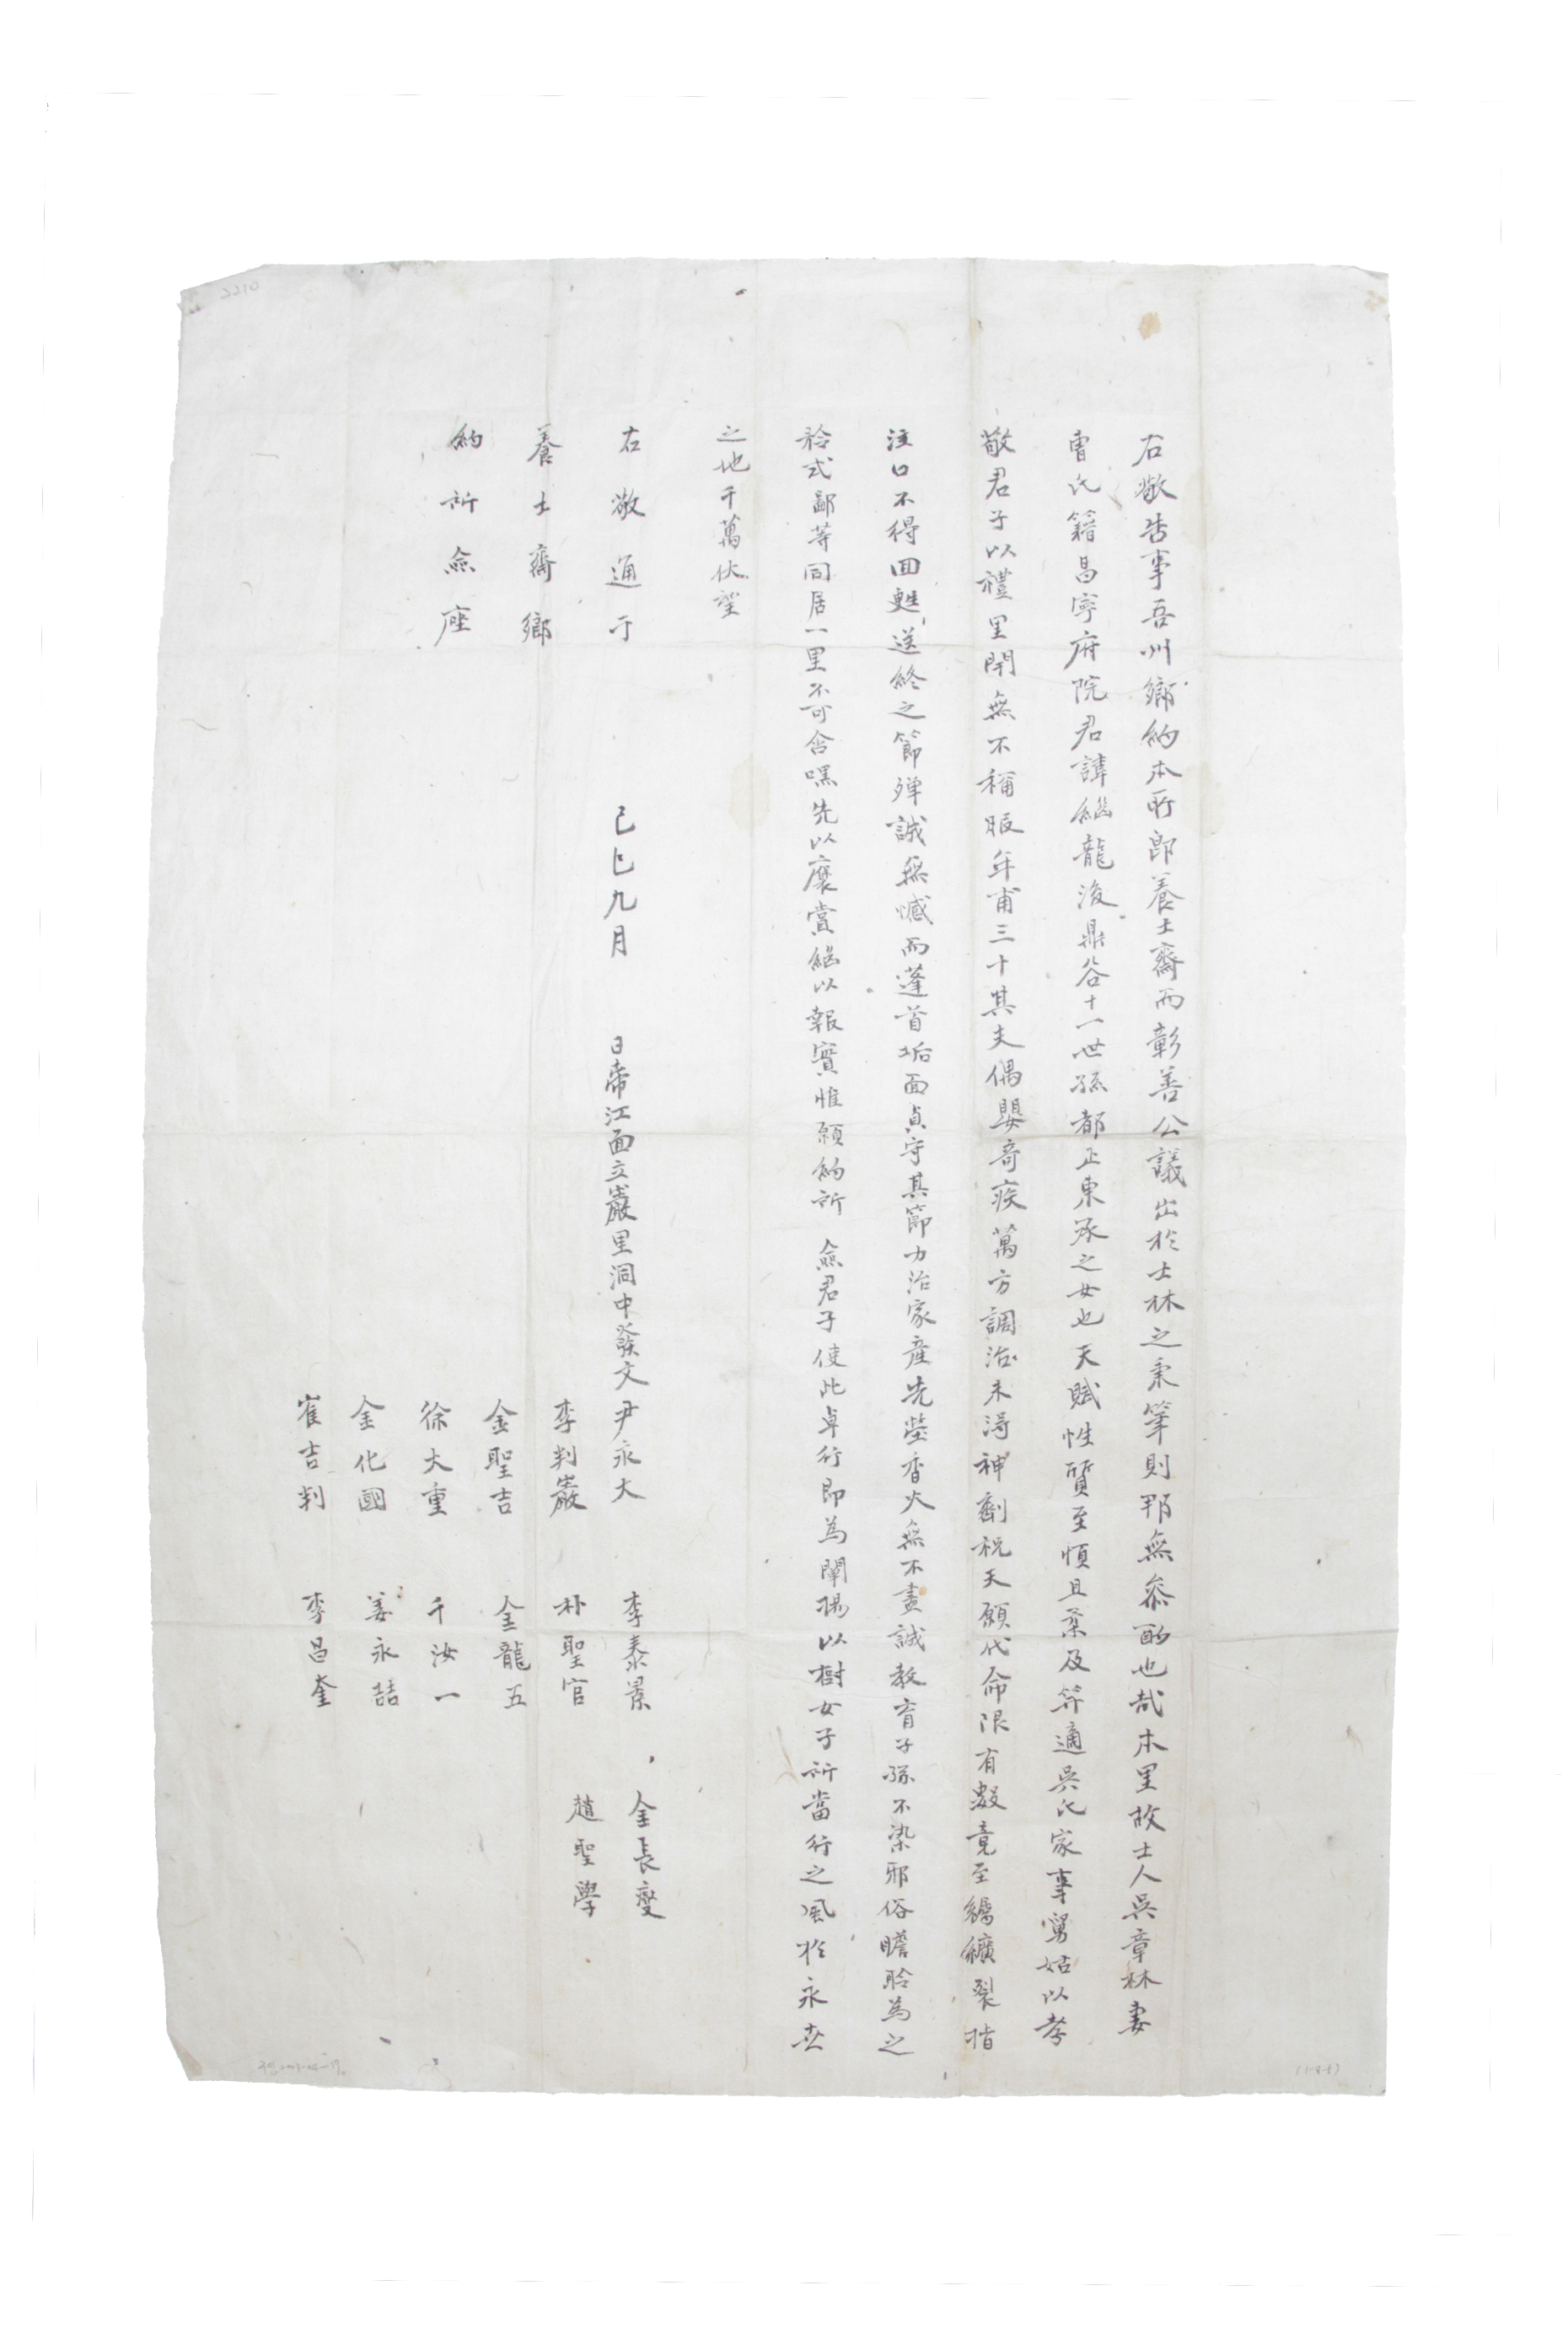 右敬告事吾州鄕約本所卽養士齋而彰善公議出於士林之秉筆則耶無叅酌也哉本里故士人吳章林妻
曺氏籍昌寧府院君諱繼龍后鼎谷十一世孫都正東承之女也天賦性質至順且柔及笄適吳氏家事舅姑以孝
敬君子以禮里閈無不稱服年甫三十其夫偶嬰奇疾萬方調治未得神劑祝天願代命限有數竟至纊裂指
注口不得回甦送終之節殫誠無憾而蓬首垢面貞守其節力治家產先塋香火無不盡誠敎育子孫不染邪俗瞻聆爲之
矜式鄙等同居一里不可含嘿先以褒賞繼以報實惟願約所 僉君子使此卓行卽爲闡揚以樹女子所當行之風於永世
之地千萬伏望
右敬通于
養士齋鄕
約所僉座
己巳九月 日帝江面立巖里洞中發文尹永大 李泰景 金長燮
李判巖 朴聖官 趙聖學
金聖吉 金龍五
徐大重 千汝一
金化國 姜永喆
崔吉判 李昌奎
2210
(1-8-1)